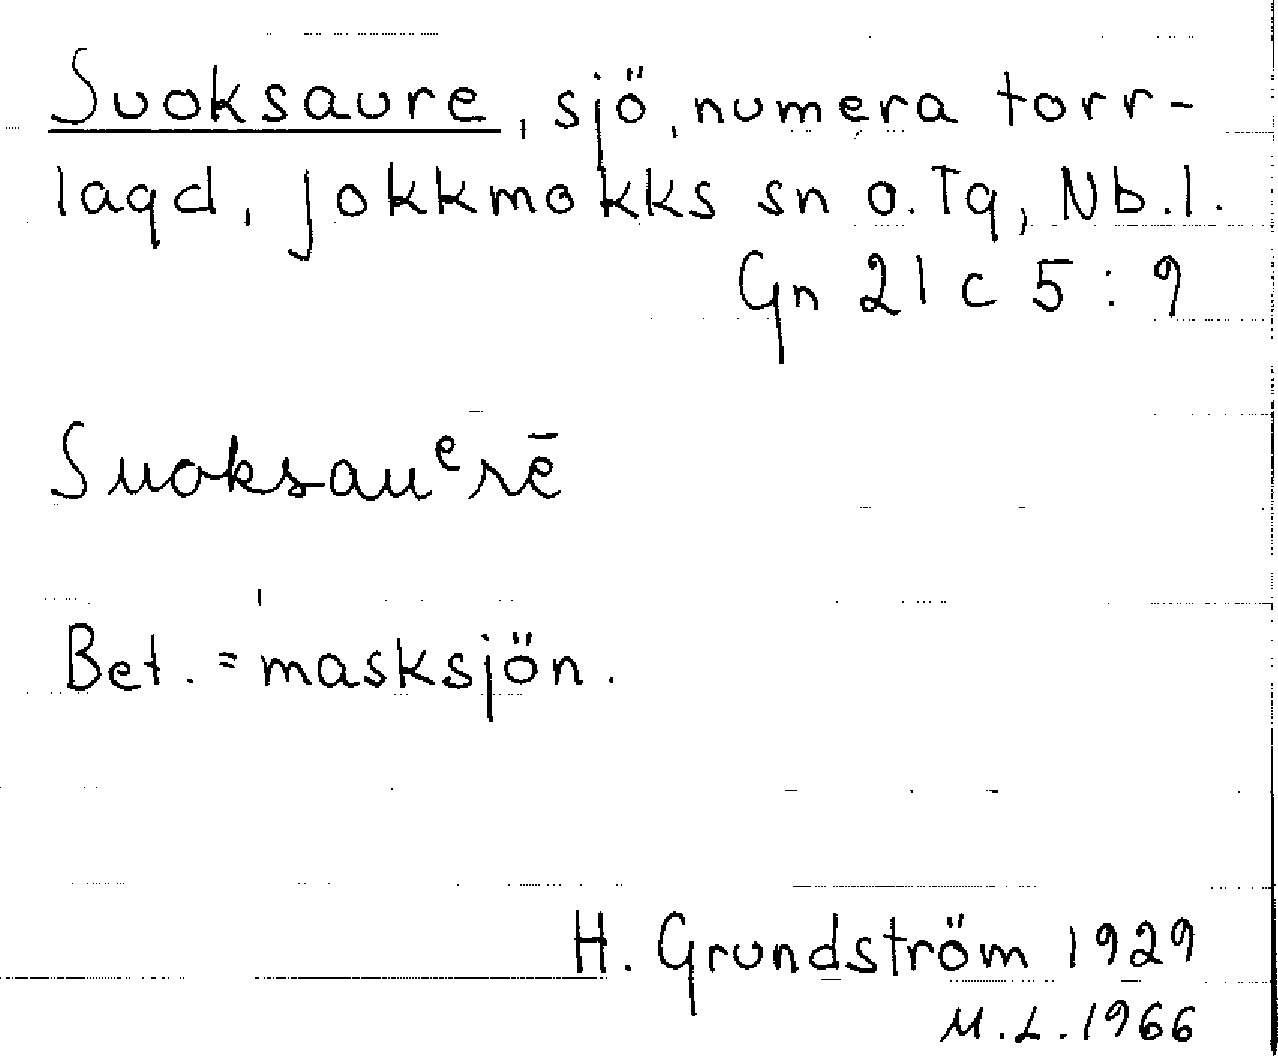 Suoksaure, sjö, numera torr-
lagd, Jokkmokks sn o. Tg, Nb.l.
Gn 21 c 5:9
Suoksauᵉrē
Bet. = masksjön.
H. Grundström 1929
M.L. 1966